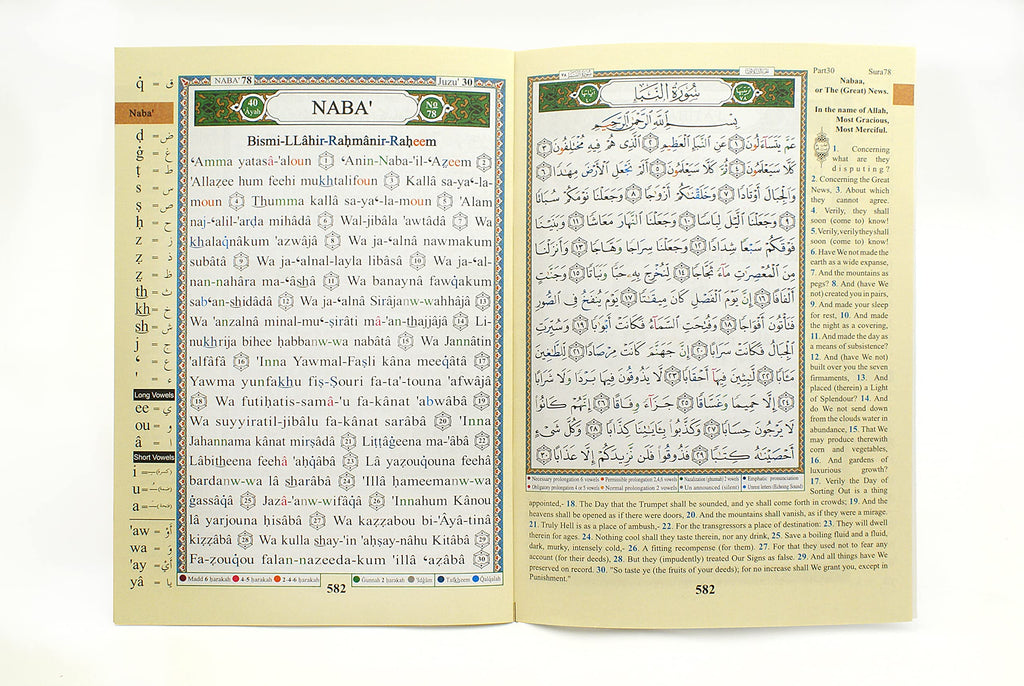 q̇ = ق
Naba'
ḍ = ض
ġ = غ
ṭ = ط
s = س
ṣ = ص
ḥ = ح
z = ز
ẓ = ظ
th = ث
kh = خ
sh = ش
j = ج
‘ = ع
' = ء
Long Vowels
ee = ي
ou = و
â = ا
Short Vowels
i =
u =
a =
'aw = أَوْ
wa = وَ
'ay = أَيْ
yâ = يا
NABA' 78
Juzu' 30
40
'Ayah
NABA'
No
78
Bismi-LLâhir-Raḥmânir-Raḥeem
‘Amma yatasâ-'aloun 1 ‘Anin-Naba-'il-‘Aẓeem 2
'Allaẓee hum feehi mukhtalifoun 3 Kallâ sa-ya‘-la-
moun 4 Thumma kallâ sa-ya‘-la-moun 5 'Alam
naj-‘alil-'arḍa mihâdâ 6 Wal-jibâla 'awtâdâ 7 Wa
khalaqnâkum 'azwâjâ 8 Wa ja-‘alnâ nawmakum
subâtâ 9 Wa ja-‘alnal-layla libâsâ 10 Wa ja-‘al-
nan-nahâra ma-‘âshâ 11 Wa banaynâ fawqakum
sab‘an-shidâdâ 12 Wa ja-‘alnâ Sirâjanw-wahhâjâ 13
Wa 'anzalnâ minal-mu‘-ṣirâti mâ-'an-thajjâjâ 14 Li-
nukhrija bihee ḥabbanw-wa nabâtâ 15 Wa Jannâtin
'alfâfâ 16 'Inna Yawmal-Faṣli kâna meeqâtâ 17
Yawma yunfakhu fiṣ-Ṣouri fa-ta'-touna 'afwâjâ
18 Wa futiḥatis-samâ-'u fa-kânat 'abwâbâ 19
Wa suyyiratil-jibâlu fa-kânat sarâbâ 20 'Inna
Jahannama kânat mirṣâdâ 21 Liṭṭâġeena ma-'âbâ 22
Lâbitheena feehâ 'aḥqâbâ 23 Lâ yaẓouqouna feehâ
bardanw-wa lâ sharâbâ 24 'Illâ ḥameemanw-wa
ġassâqâ 25 Jazâ-'anw-wifâqâ 26 'Innahum Kânou
lâ yarjouna ḥisâbâ 27 Wa kaẓẓabou bi-'Âyâ-tinâ
kiẓẓâbâ 28 Wa kulla shay-'in 'aḥṣay-nâhu Kitâbâ 29
Fa-ẓouqou falan-nazeeda-kum 'illâ ‘aẓâbâ 30
Madd 6 ḥarakah 4-5 ḥarakah 2-4-6 ḥarakah Ġunnah 2 ḥarakah 'Idġâm Tafkheem Qalqalah
582
سُورَةُ النَّبَإِ
بِسْمِ اللَّهِ الرَّحْمَٰنِ الرَّحِيمِ
عَمَّ يَتَسَاءَلُونَ ١ عَنِ النَّبَإِ الْعَظِيمِ ٢ الَّذِي هُمْ فِيهِ مُخْتَلِفُونَ ٣
كَلَّا سَيَعْلَمُونَ ٤ ثُمَّ كَلَّا سَيَعْلَمُونَ ٥ أَلَمْ نَجْعَلِ الْأَرْضَ مِهَادًا ٦
وَالْجِبَالَ أَوْتَادًا ٧ وَخَلَقْنَاكُمْ أَزْوَاجًا ٨ وَجَعَلْنَا نَوْمَكُمْ سُبَاتًا
٩ وَجَعَلْنَا اللَّيْلَ لِبَاسًا ١٠ وَجَعَلْنَا النَّهَارَ مَعَاشًا ١١ وَبَنَيْنَا
فَوْقَكُمْ سَبْعًا شِدَادًا ١٢ وَجَعَلْنَا سِرَاجًا وَهَّاجًا ١٣ وَأَنزَلْنَا
مِنَ الْمُعْصِرَاتِ مَاءً ثَجَّاجًا ١٤ لِّنُخْرِجَ بِهِ حَبًّا وَنَبَاتًا ١٥ وَجَنَّاتٍ
أَلْفَافًا ١٦ إِنَّ يَوْمَ الْفَصْلِ كَانَ مِيقَاتًا ١٧ يَوْمَ يُنفَخُ فِي الصُّورِ
فَتَأْتُونَ أَفْوَاجًا ١٨ وَفُتِحَتِ السَّمَاءُ فَكَانَتْ أَبْوَابًا ١٩ وَسُيِّرَتِ
الْجِبَالُ فَكَانَتْ سَرَابًا ٢٠ إِنَّ جَهَنَّمَ كَانَتْ مِرْصَادًا ٢١ لِّلطَّاغِينَ
مَآبًا ٢٢ لَّابِثِينَ فِيهَا أَحْقَابًا ٢٣ لَّا يَذُوقُونَ فِيهَا بَرْدًا وَلَا شَرَابًا
٢٤ إِلَّا حَمِيمًا وَغَسَّاقًا ٢٥ جَزَاءً وِفَاقًا ٢٦ إِنَّهُمْ كَانُوا
لَا يَرْجُونَ حِسَابًا ٢٧ وَكَذَّبُوا بِآيَاتِنَا كِذَّابًا ٢٨ وَكُلَّ شَيْءٍ
أَحْصَيْنَاهُ كِتَابًا ٢٩ فَذُوقُوا فَلَن نَّزِيدَكُمْ إِلَّا عَذَابًا ٣٠
Necessary prolongation 6 vowels Permissible prolongation 2,4,6 vowels Nazalization (ghunnah) 2 vowels Emphatic pronunciation
Obligatory prolongation 4 or 5 vowels Normal prolongation 2 vowels Un announced (silent) Unrest letters (Echoing Sound)
Part30 Sura78
Nabaa,
or The (Great) News.
In the name of Allah,
Most Gracious,
Most Merciful.
1. Concerning
what are they
disputing?
2. Concerning the Great
News, 3. About which
they cannot agree.
4. Verily, they shall
soon (come to) know!
5. Verily, verily they shall
soon (come to) know!
6. Have We not made the
earth as a wide expanse,
7. And the mountains as
pegs? 8. And (have We
not) created you in pairs,
9. And made your sleep
for rest, 10. And made
the night as a covering,
11. And made the day as
a means of subsistence?
12. And (have We not)
built over you the seven
firmaments, 13. And
placed (therein) a Light
of Splendour? 14. And
do We not send down
from the clouds water in
abundance, 15. That We
may produce therewith
corn and vegetables,
16. And gardens of
luxurious growth?
17. Verily the Day of
Sorting Out is a thing
appointed,- 18. The Day that the Trumpet shall be sounded, and ye shall come forth in crowds; 19. And the
heavens shall be opened as if there were doors, 20. And the mountains shall vanish, as if they were a mirage.
21. Truly Hell is as a place of ambush,- 22. For the transgressors a place of destination: 23. They will dwell
therein for ages. 24. Nothing cool shall they taste therein, nor any drink, 25. Save a boiling fluid and a fluid,
dark, murky, intensely cold,- 26. A fitting recompense (for them). 27. For that they used not to fear any
account (for their deeds), 28. But they (impudently) treated Our Signs as false. 29. And all things have We
preserved on record. 30. "So taste ye (the fruits of your deeds); for no increase shall We grant you, except in
Punishment."
582